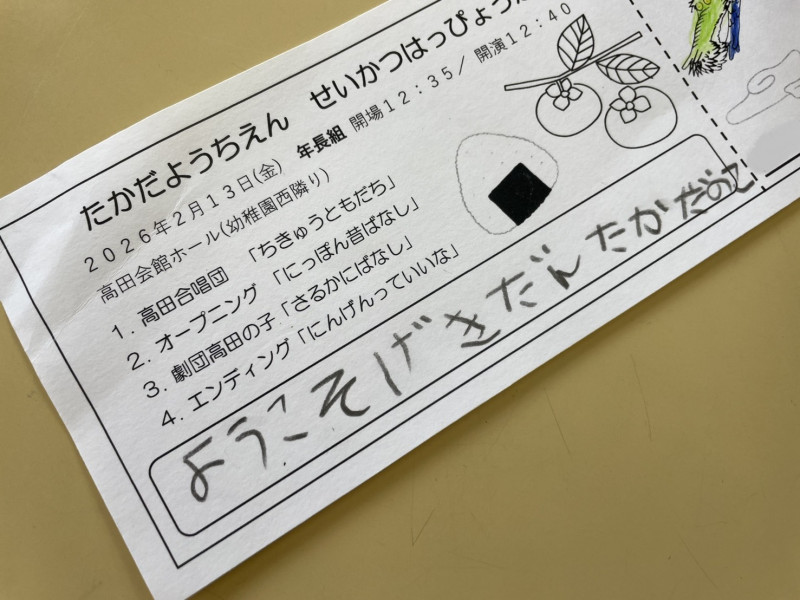 たかだようちえん　せいかつはっぴょう
2026年2月13日(金)　年長組 開場12:35/ 開演12:40
高田会館ホール(幼稚園西隣り)
1. 高田合唱団　「ちきゅうともだち」
2. オープニング　「にっぽん昔ばなし」
3. 劇団高田の子「さるかにばなし」
4. エンディング「にんげんっていいな」
ようこそげきだんたかだのこ